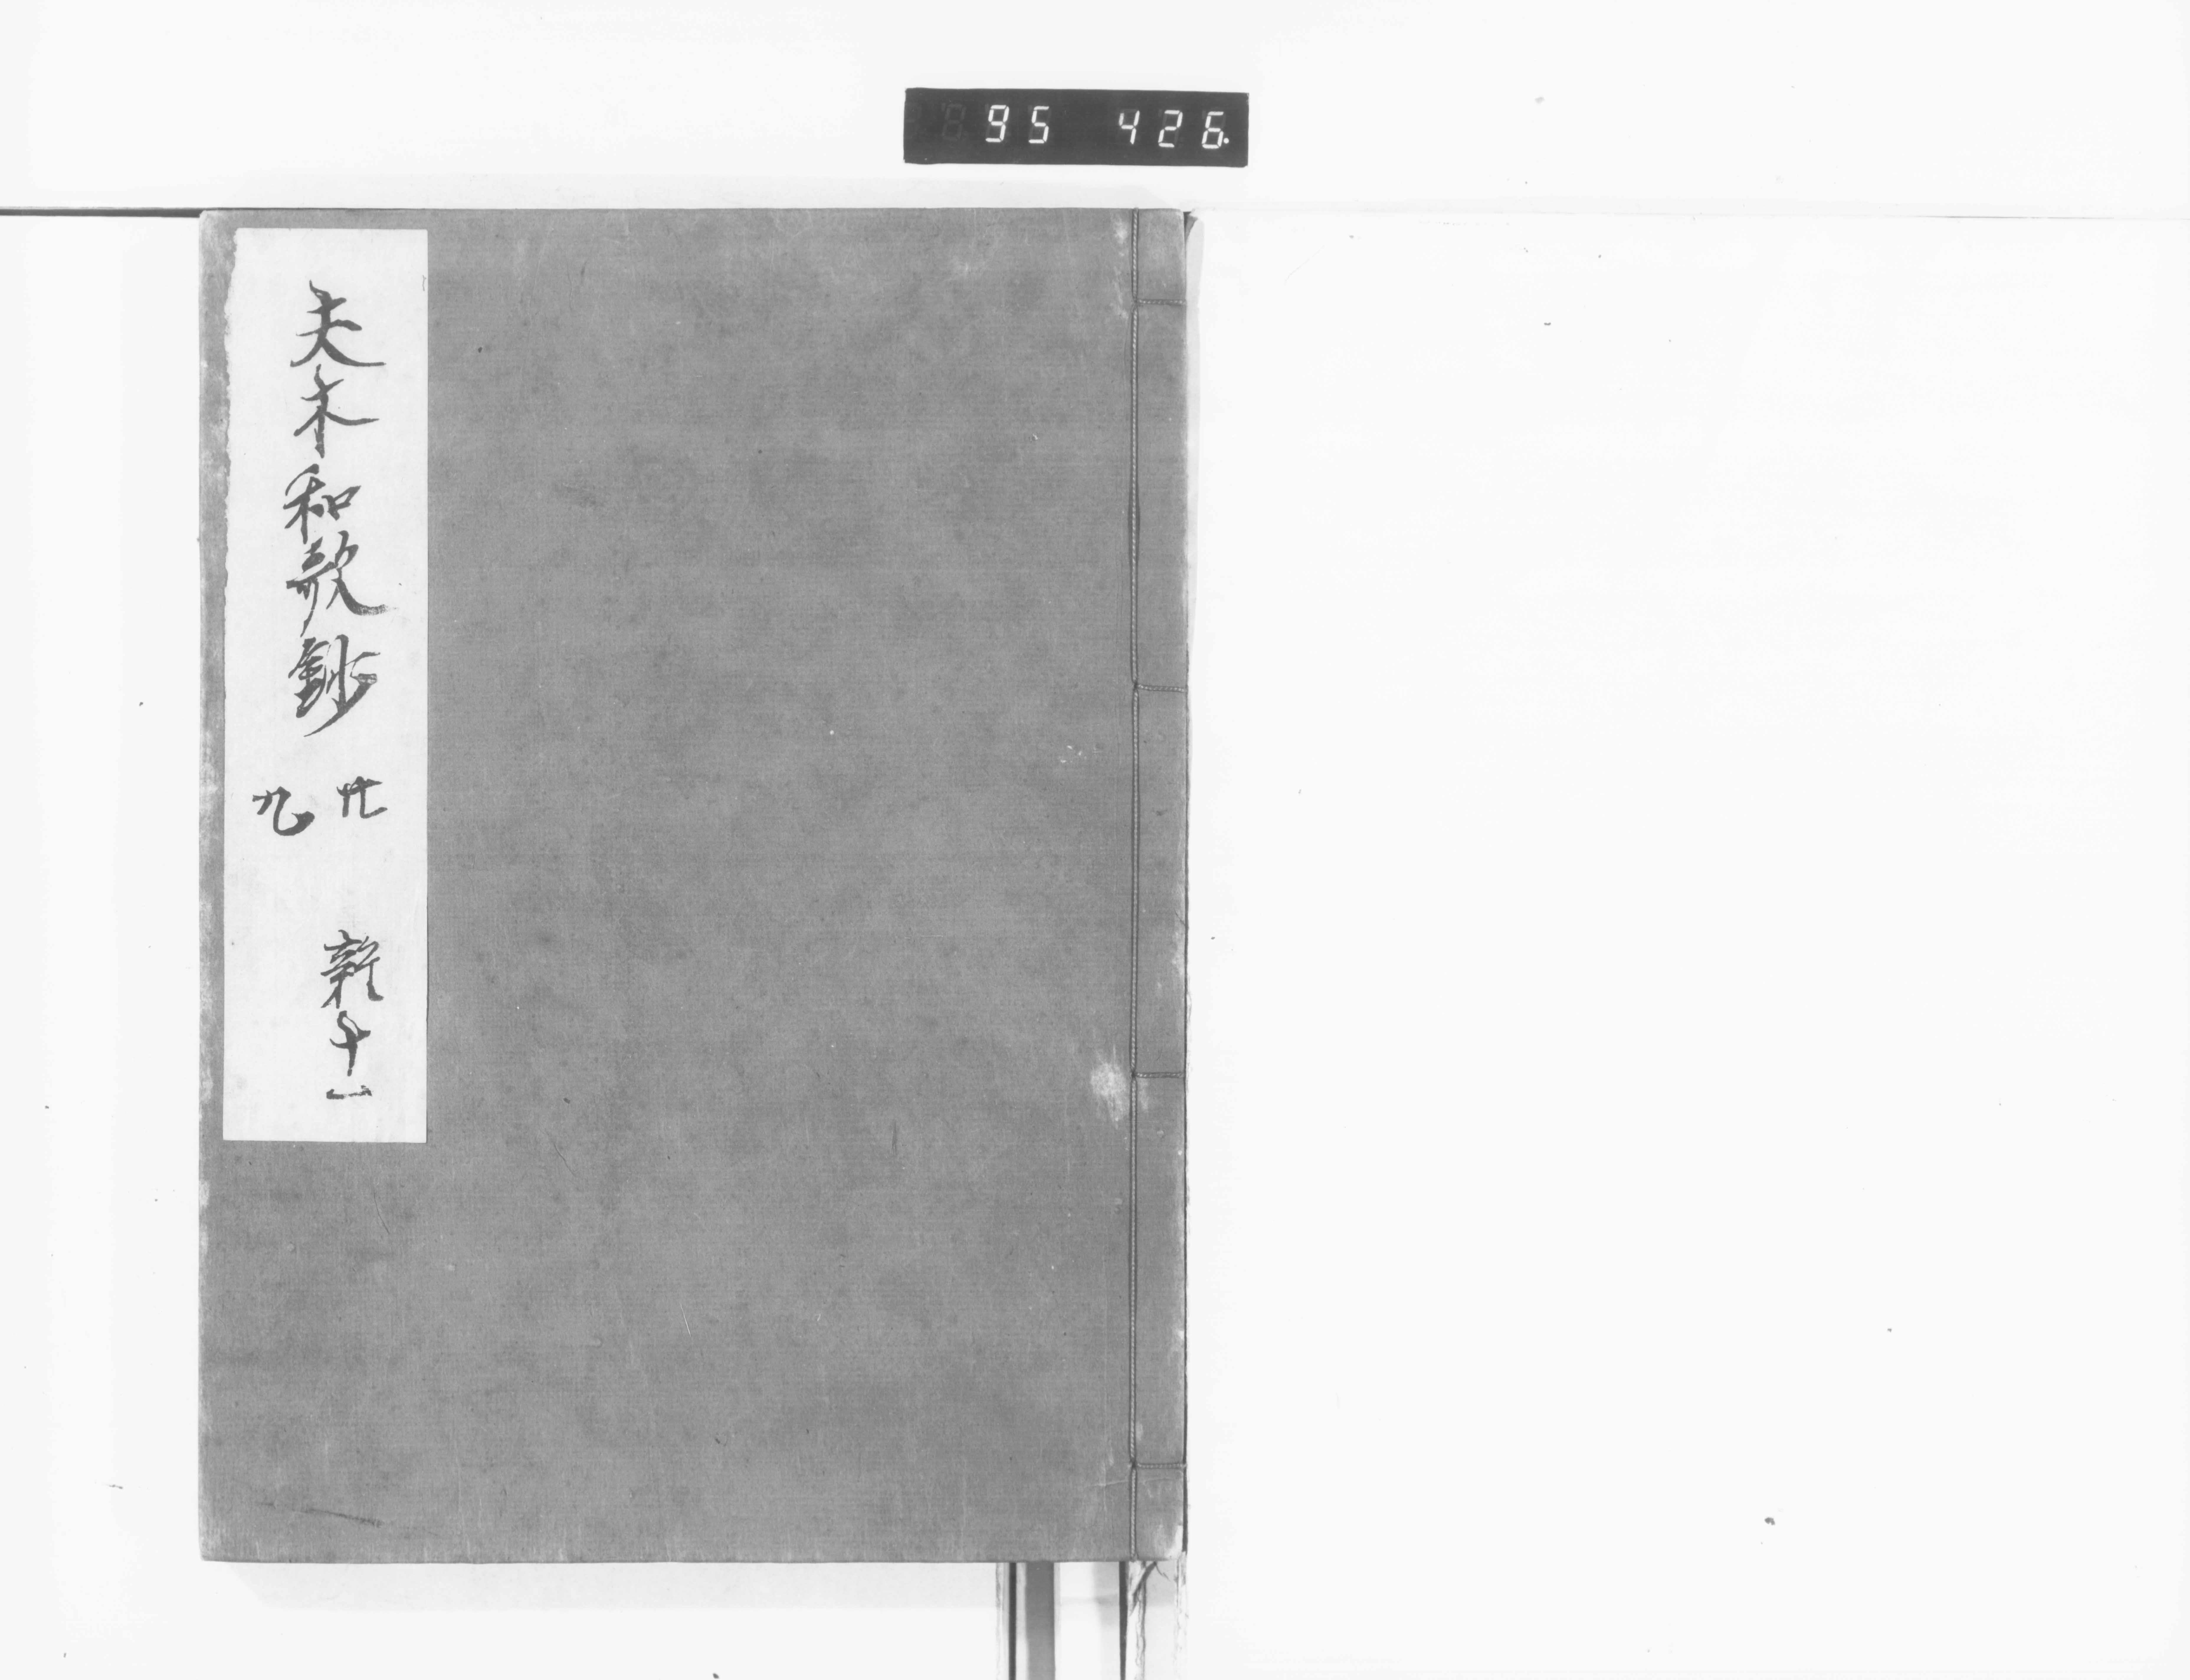 95 426.
夫木和歌鈔 廿九 雑十一